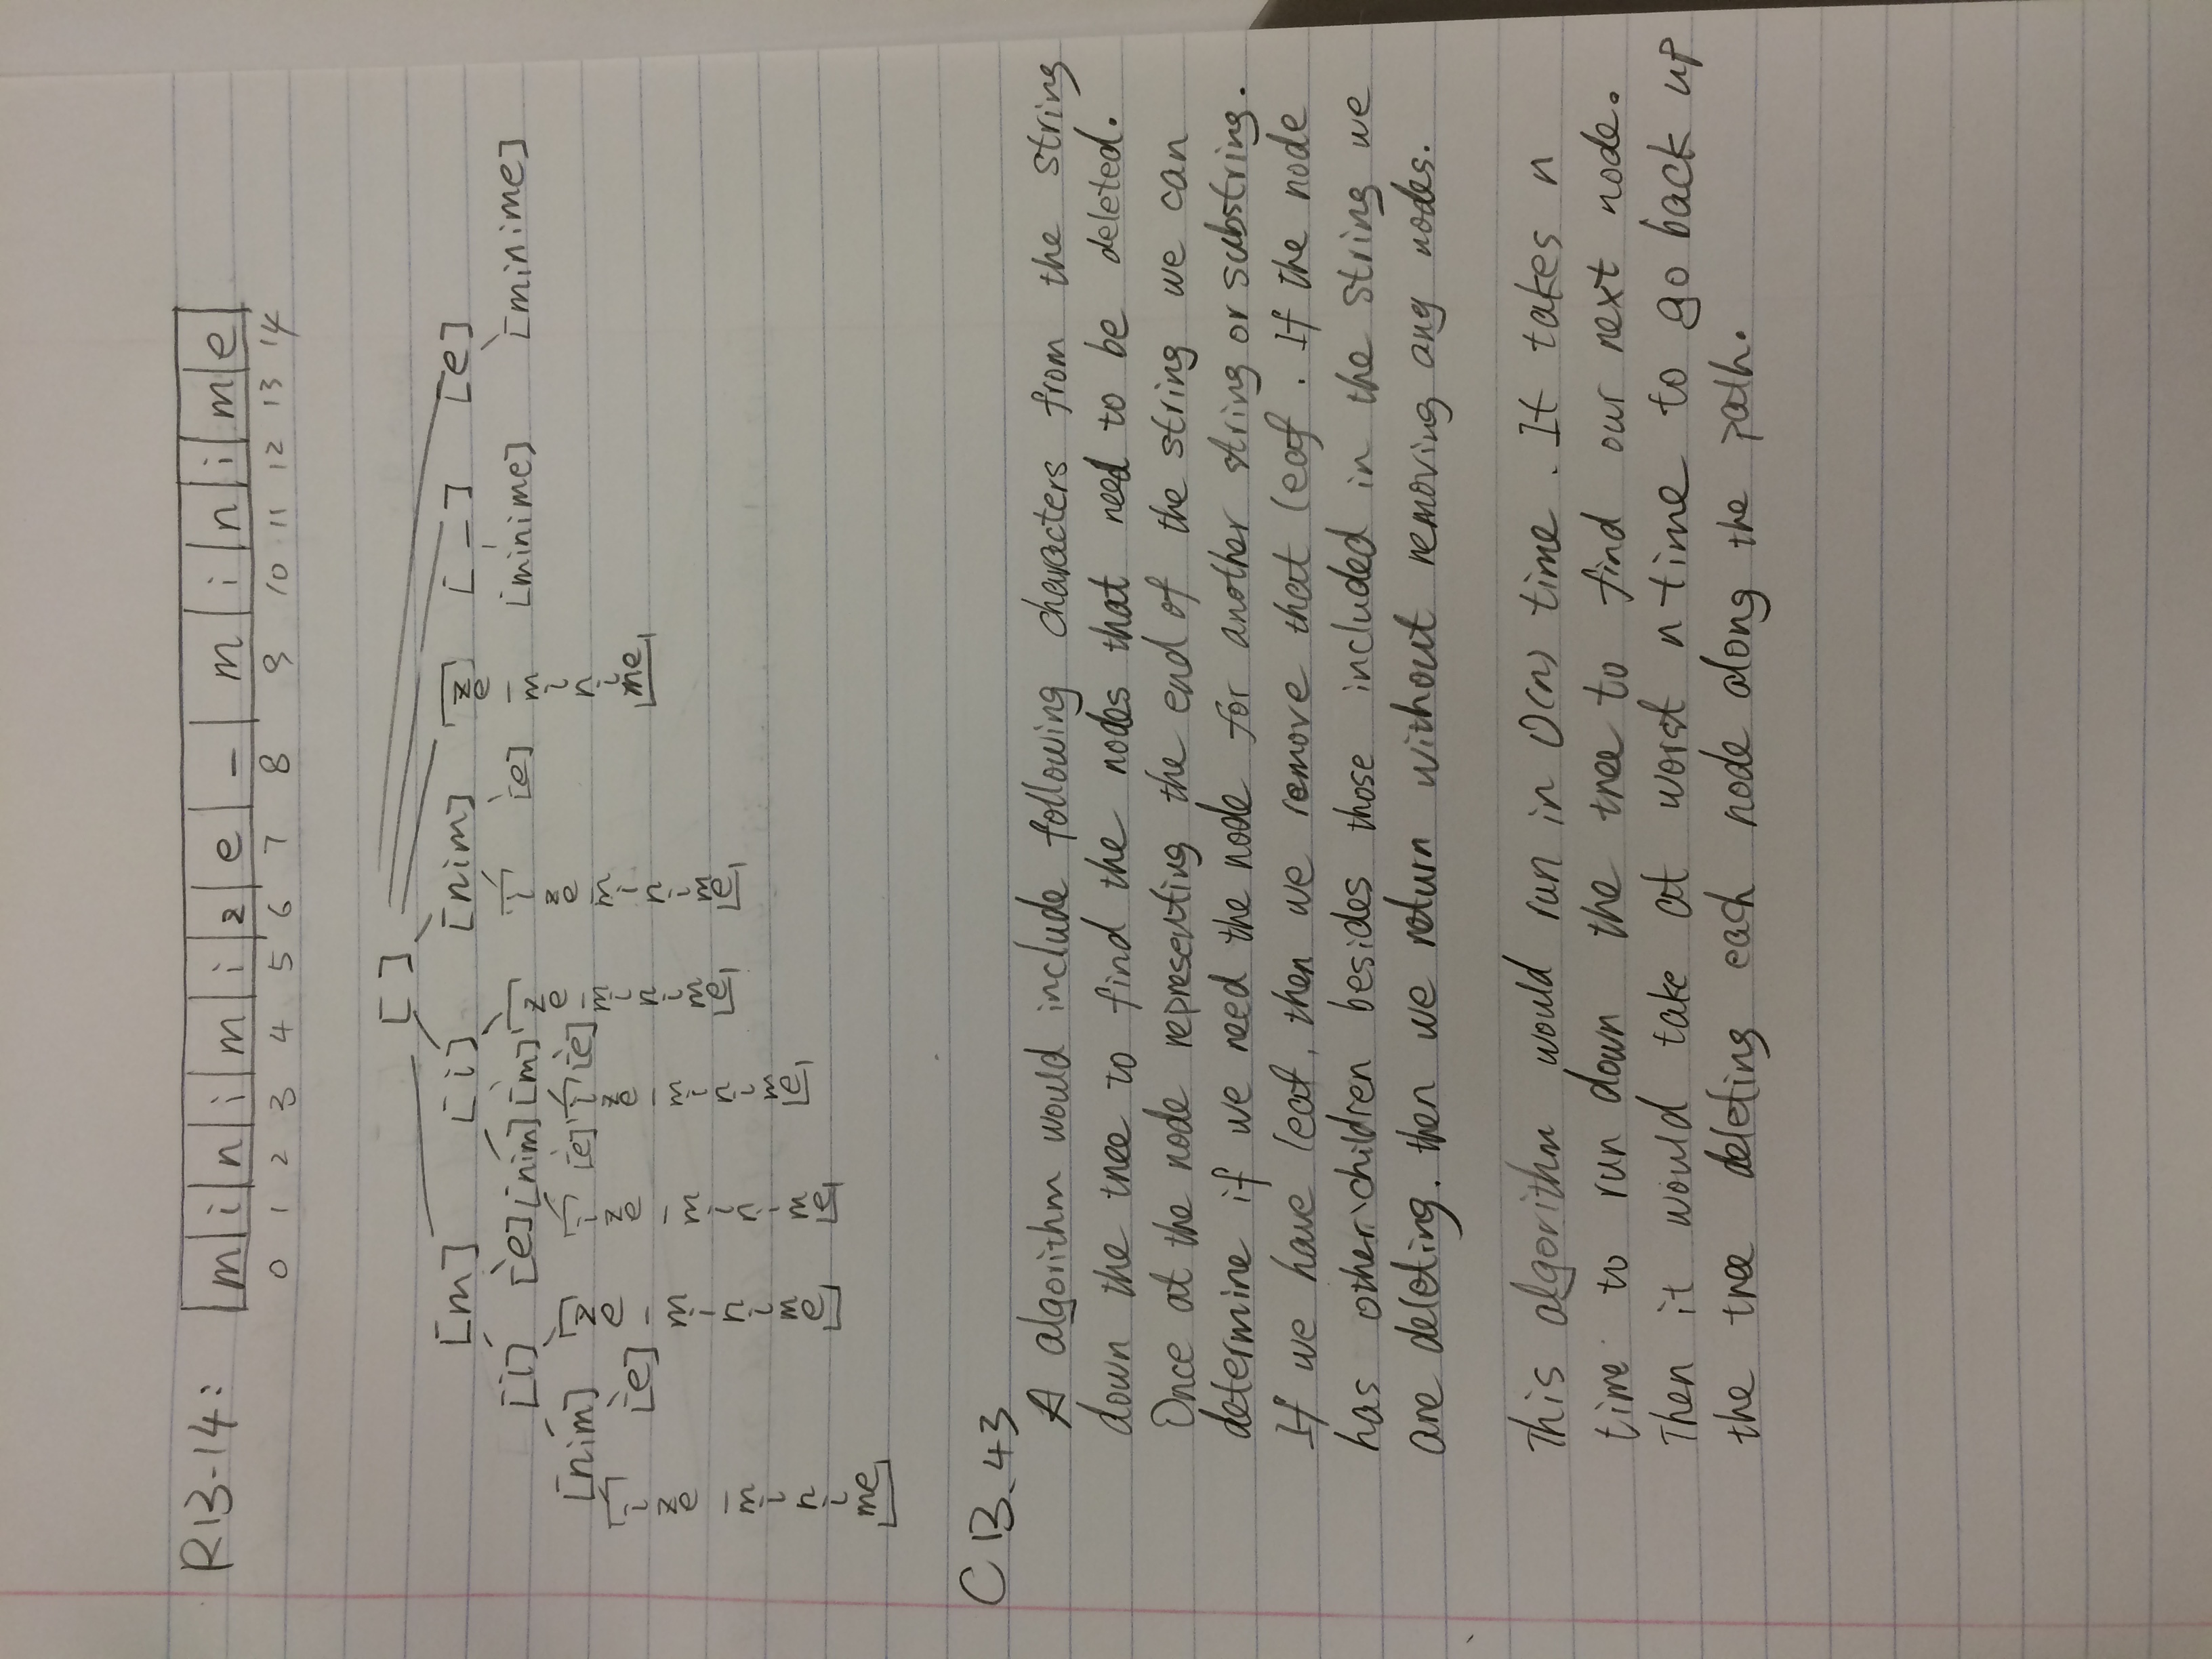 R13-14: m i n i m i z e _ m i n i m e
0 1 2 3 4 5 6 7 8 9 10 11 12 13 14
[ ]
[m] [i] [nim] [ze_minime] [_] [e]
[i] [e] [nim] [m] [ze_minime] [ize_minime] [e] [minime] [minime]
[nim] [ze_minime] [ize_minime] [e] [ize_minime] [e]
[ize_minime] [e]
C13.43
A algorithm would include following characters from the string
down the tree to find the nodes that need to be deleted.
Once at the node representing the end of the string we can
determine if we need the node for another string or substring.
If we have leaf, then we remove that leaf. If the node
has other children besides those included in the string we
are deleting. then we return without removing any nodes.
This algorithm would run in O(n) time. It takes n
time to run down the tree to find our next node.
Then it would take at worst n time to go back up
the tree deleting each node along the path.